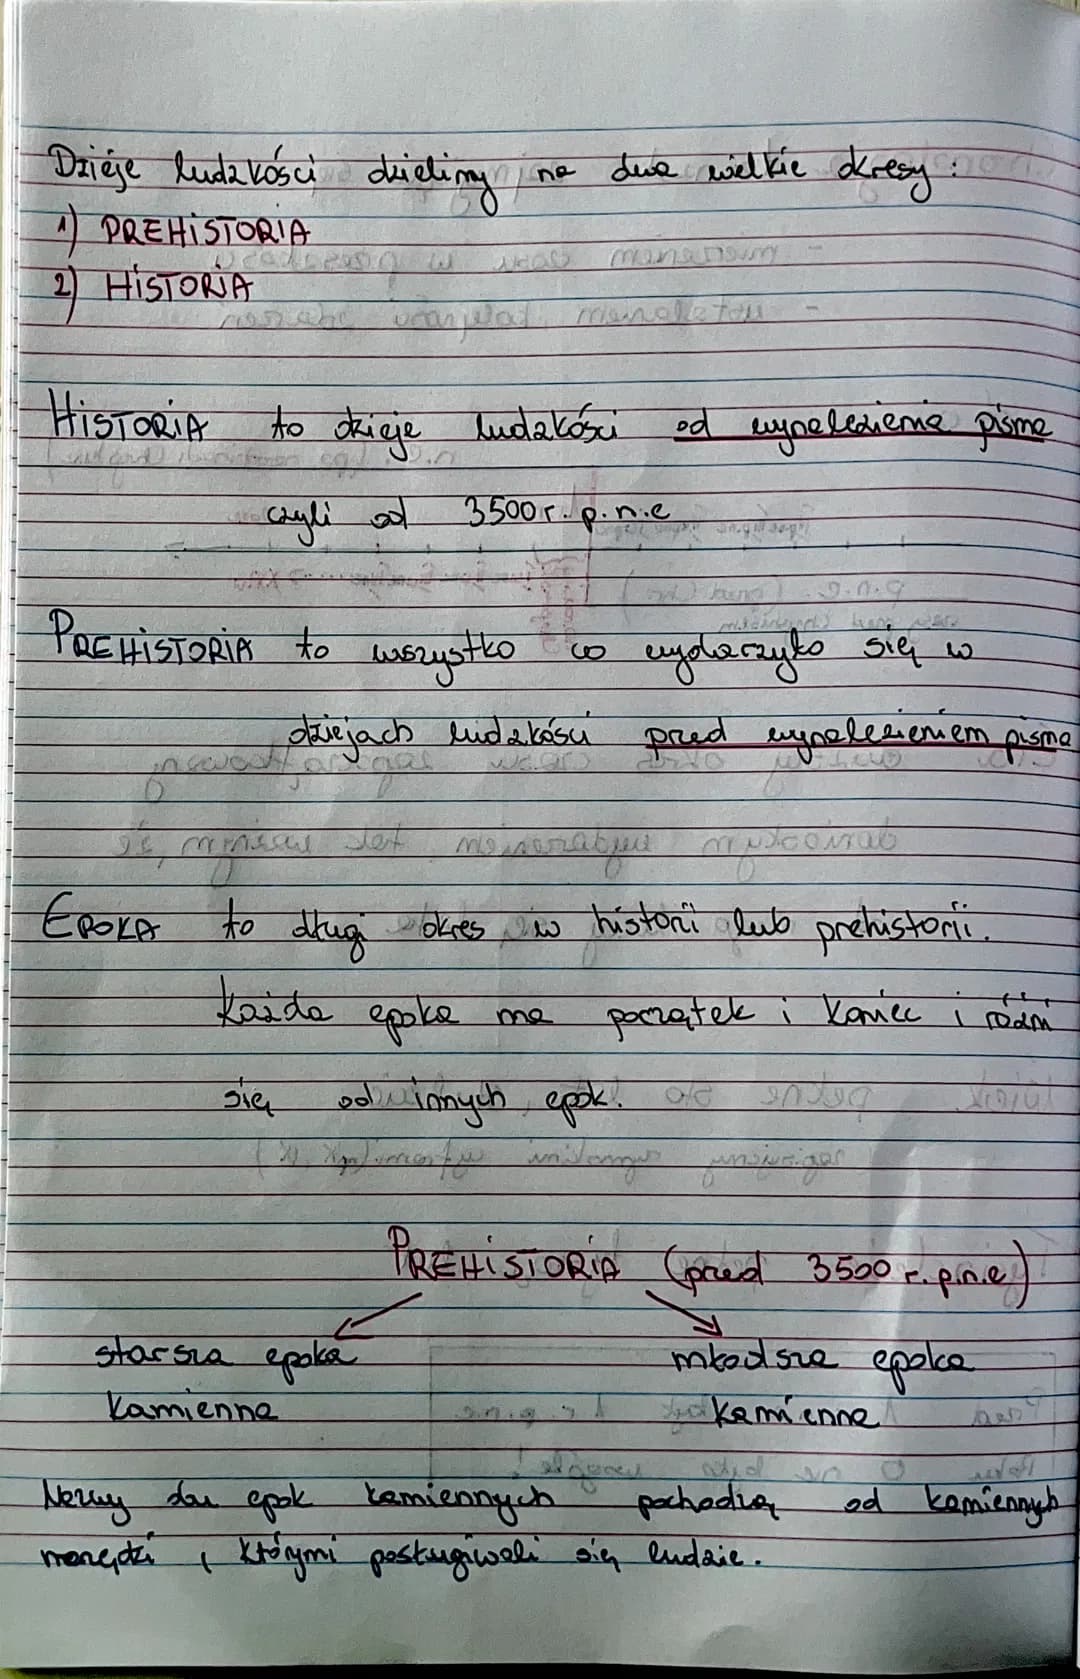 Dzieje ludzkości dzielimy na dwa wielkie okresy:
1) PREHISTORIA
2) HISTORIA
HISTORIA to dzieje ludzkości od wynalezienia pisma
czyli od 3500 r. p.n.e
PREHISTORIA to wszystko co wydarzyło się w
dziejach ludzkości przed wynalezieniem pisma
EPOKA to długi okres w historii lub prehistorii.
Każda epoka ma początek i koniec i różni
się od innych epok.
PREHISTORIA (przed 3500 r. p.n.e)
starsza epoka młodsza epoka
kamienna kamienna
Nazwy dla epok kamiennych pochodzą od kamiennych
narzędzi, którymi posługiwali się ludzie.